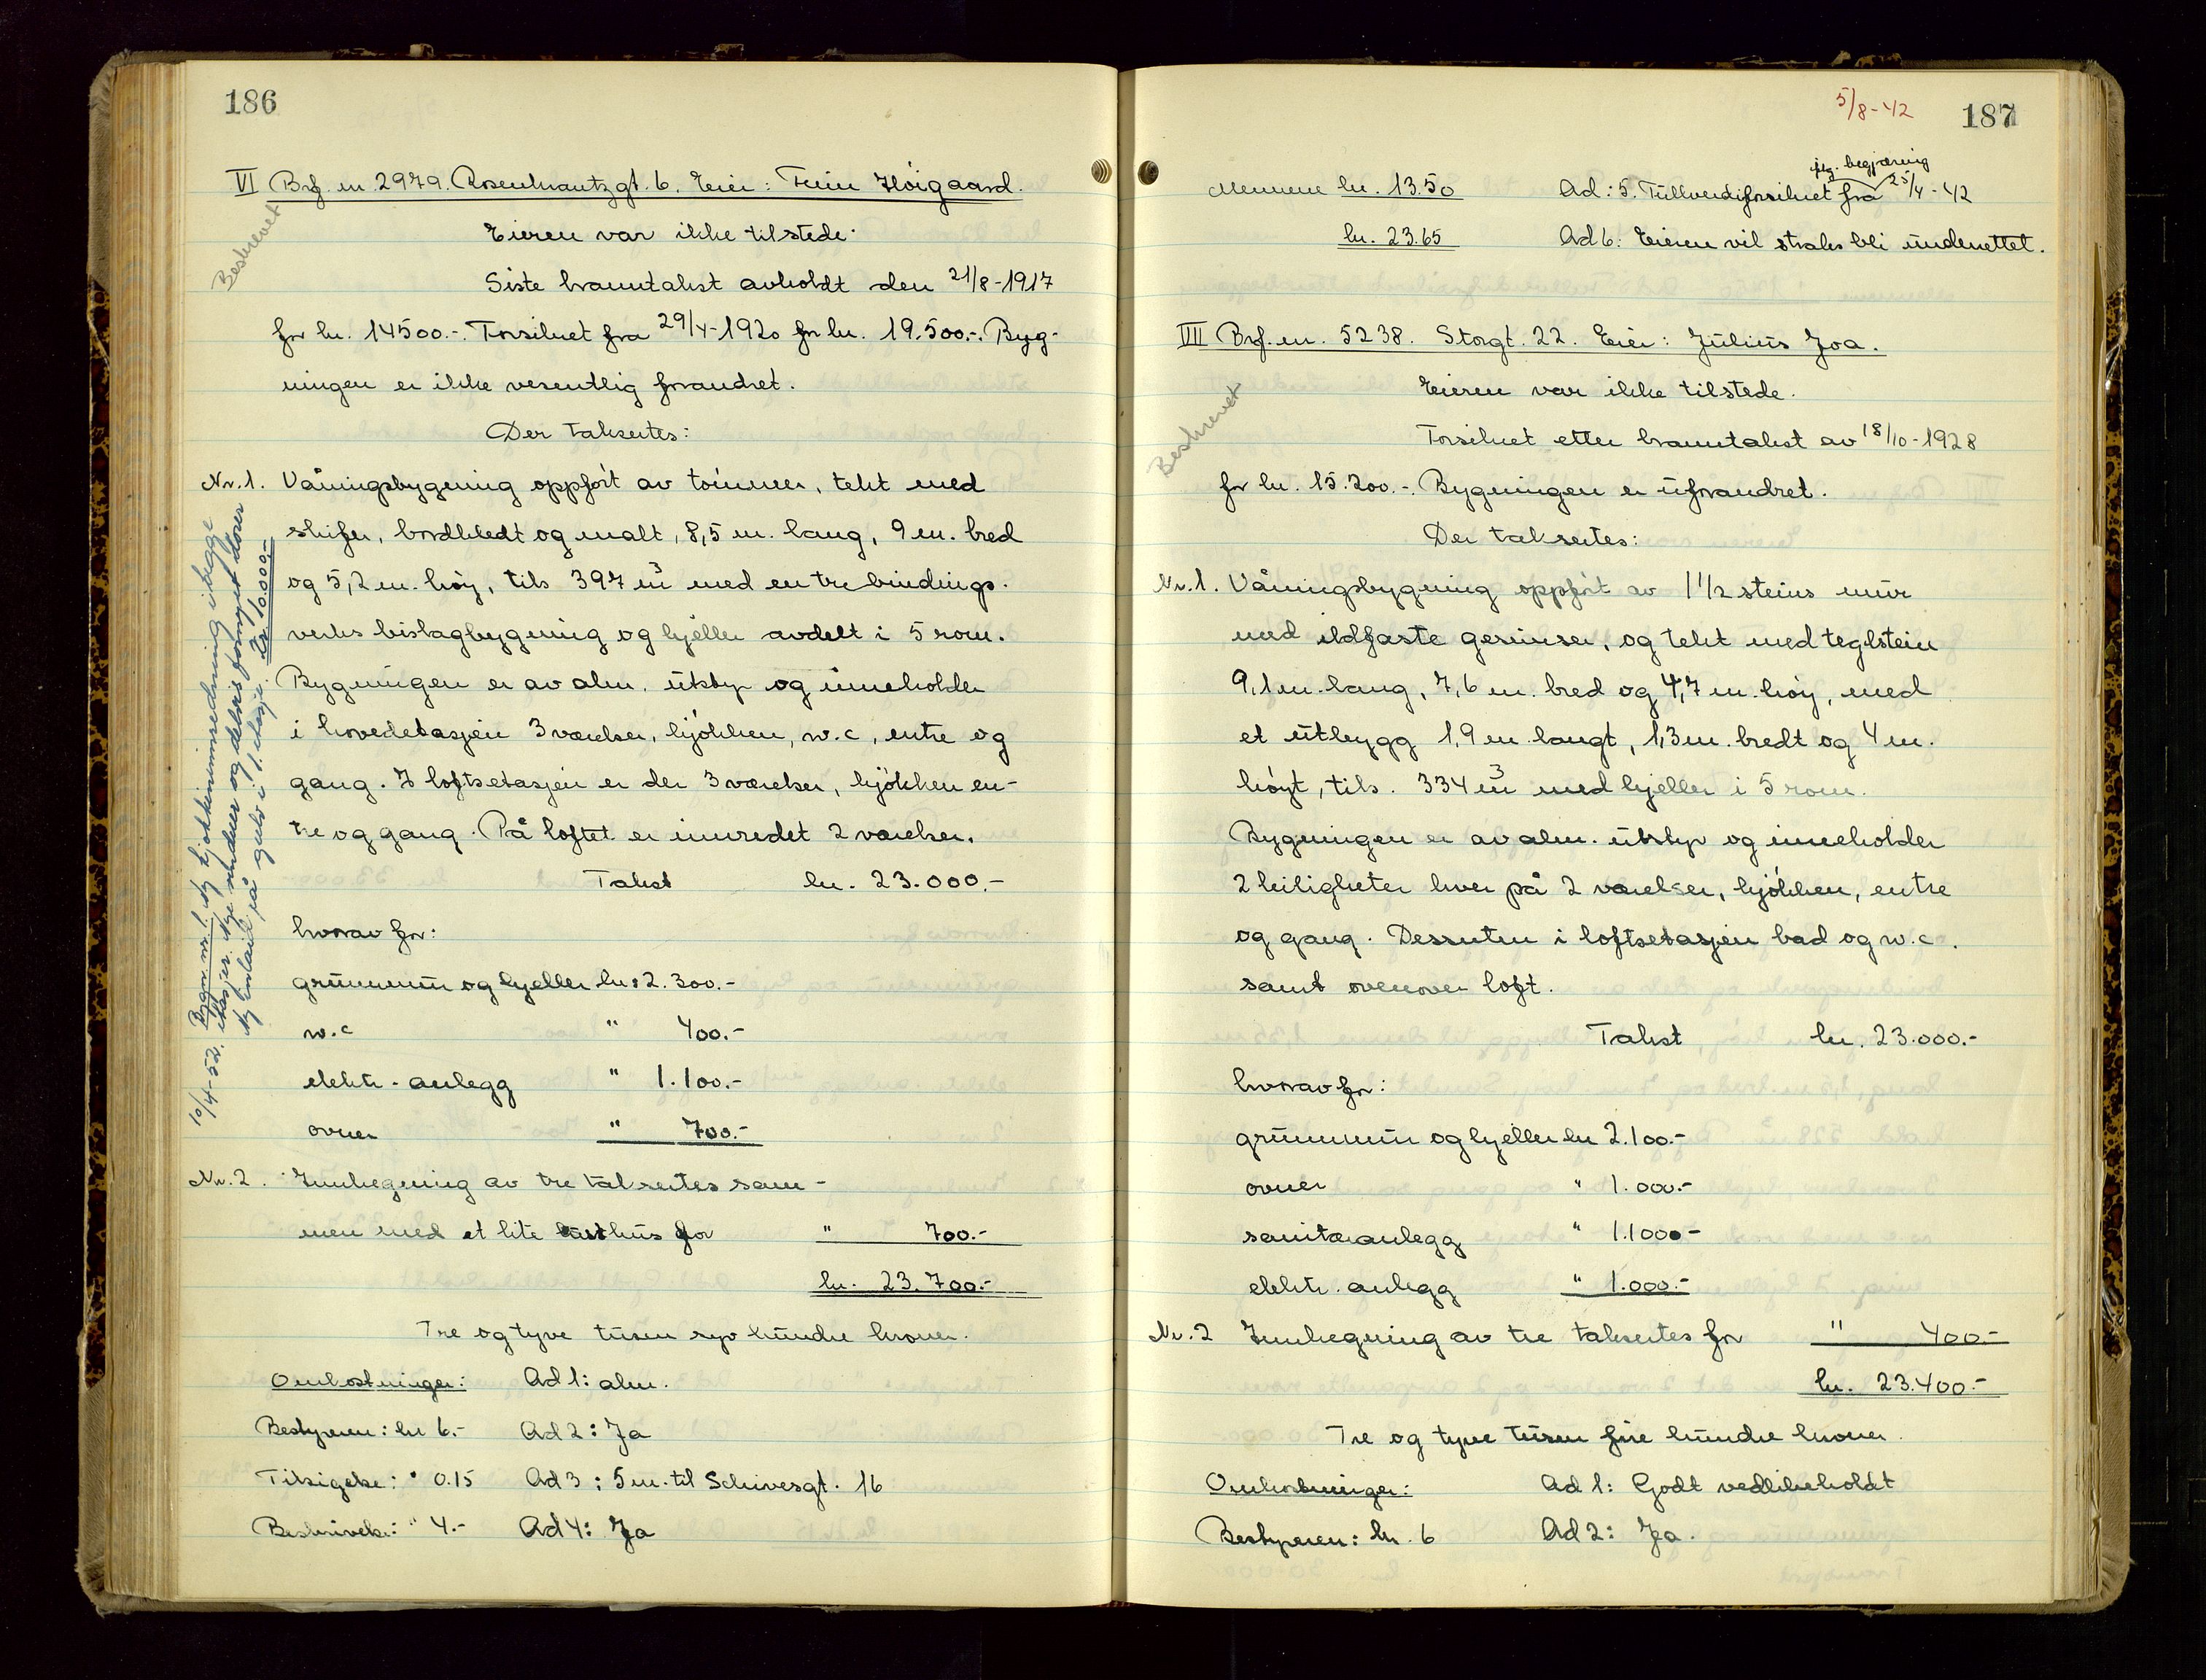 186
VI Brf. nr. 2979. Rosenkrantzgt. 6. Eier: Finn Höigaard.
Beskrevet
Eieren var ikke tilstede.
Siste branntakst avholdt den 21/8-1917
for kr. 14500.-. Forsikret fra 29/4-1920 for kr. 19.500.-. Byg-
ningen er ikke vesentlig forandret.
Der takseres:
Nr. 1. Våningsbygning oppfört av tömmer, tekt med
skifer, bordkledt og malt, 8,5 m. lang, 9 m. bred
og 5,2 m. höy, tils 397 m3 med en tre bindings-
verks bislagbygning og kjeller avdelt i 5 rom.
Bygningen er av alm. utstyr og inneholder
i hovedetasjen 3 værelser, kjökken, w.c, entre og
gang. I loftsetasjen er der 3 værelser, kjökken en-
tre og gang. På loftet er innredet 2 værelser.
Takst kr. 23.000.-
hvorav for:
grunnmur og kjeller kr. 2.300.-
w.c " 400.-
elektr. anlegg " 1.100.-
ovner " 700.-
Nr. 2. Innhegning av tre takseres sam-
men med et lite lysthus for " 700.-
kr. 23.700.-
Tre og tyve tusen syv hundre kroner.
Omkostninger: Ad 1: alm.
Bestyreren: kr 6.- Ad 2: Ja
Tilsigelse: " 0.15 Ad 3: 5 m. til Schivesgt. 16
Beskrivelse: " 4.- Ad 4: Ja
10/4-52. Bygn. nr. 1. Ny kjökkeninnredning i begge
etasjer. Nye vinduer og delvis fornyet dører
Ny innland på gulv i 1. etasje. Kr. 10.000.-
5/8-42
187
Mennene kr. 13.50 Ad: 5. Fullverdiforsikret fra 25/4-42
iflg. begjæring
kr. 23.65 Ad 6: Eieren vil straks bli underrettet.
III Brf. nr. 5238. Storgt. 22. Eier: Julius Joa.
Beskrevet
Eieren var ikke tilstede.
Forsikret etter branntakst av 18/10-1928
for kr. 15.200.-. Bygningen er uforandret.
Der takseres:
Nr. 1. Våningsbygning oppfört av 1 1/2 steins mur
med ildfaste gesimser, og tekt med teglstein
9,1 m. lang, 7,6 m. bred og 4,7 m. höy, med
et utbygg 1,9 m. langt, 1,3 m. bredt og 4 m.
höyt, tils. 334 m3 med kjeller i 5 rom.
Bygningen er av alm. utstyr og inneholder
2 leiligheter hver på 2 værelser, kjökken, entre
og gang. Dessuten i loftsetasjen bad og w.c.
samt ovenover loft.
Takst kr. 23.000.-
hvorav for:
grunnmur og kjeller kr 2.100.-
ovner " 1.000.-
sanitæranlegg " 1.1000-
elektr. anlegg " 1.000.-
Nr. 2 Innhegning av tre takseres for " 400.-
kr. 23.400.-
Tre og tyve tusen fire hundre kroner.
Omkostninger: Ad 1: Godt vedlikeholdt
Bestyreren: kr. 6 Ad 2: Ja.